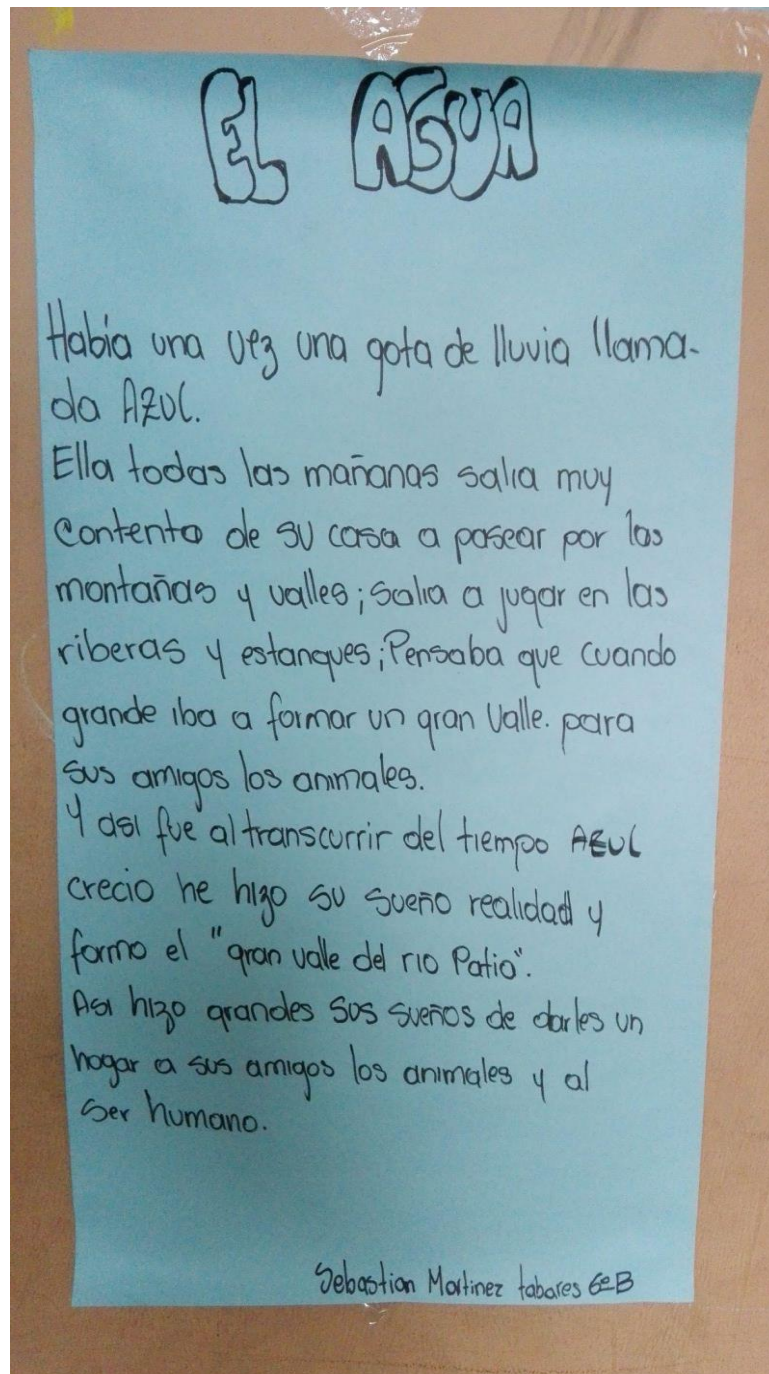 EL AGUA
Había una vez una gota de lluvia llama-
da AZUL.
Ella todas las mañanas salia muy
contento de su casa a pasear por las
montañas y valles; salia a jugar en las
riberas y estanques; Pensaba que cuando
grande iba a formar un gran Valle. para
sus amigos los animales.
Y asi fue al transcurrir del tiempo AZUL
crecio he hizo su sueño realidad y
formo el "gran valle del rio Patio".
Asi hizo grandes sus sueños de darles un
hogar a sus amigos los animales y al
ser humano.
Sebastian Martinez tabares 6º B